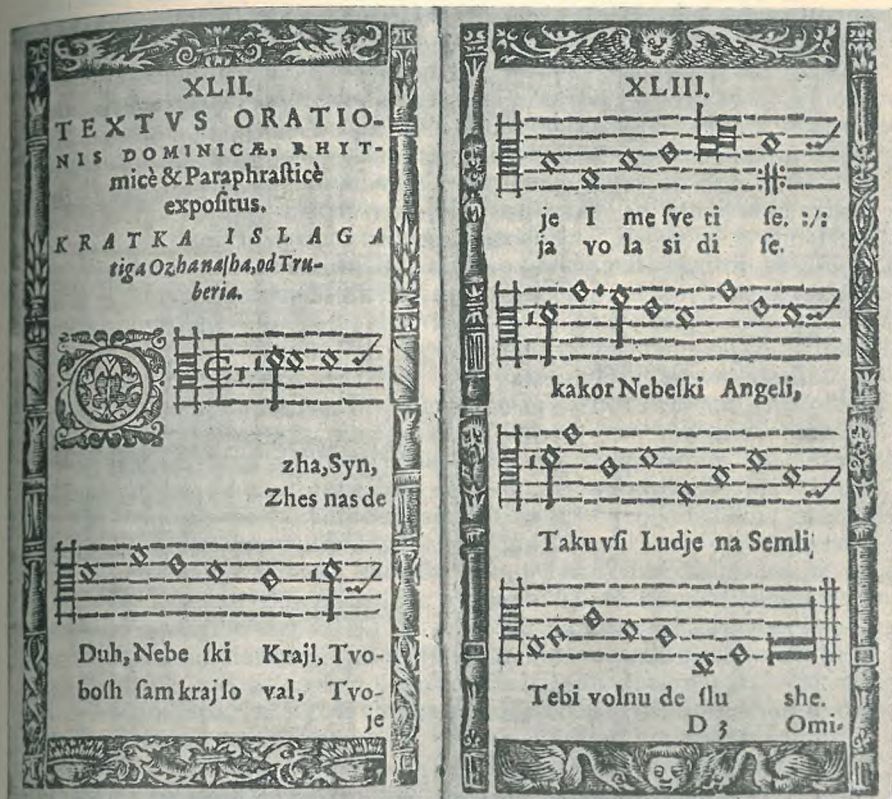 XLII.
TEXTVS ORATIO-
NIS DOMINICÆ, RHYT-
micè & Paraphraſticè
expoſitus.
KRATKA ISLAGA
tiga Ozhanaſha, od Tru-
beria.
O
zha, Syn,
Zhes nas de
Duh, Nebe ſki Krajl, Tvo-
boſh ſam krajlo val, Tvo-
je
XLIII.
je I me ſve ti ſe. :/:
ja vo la si di ſe.
kakor Nebeſki Angeli,
Taku vſi Ludje na Semli
Tebi volnu de ſlu she.
D 3 Omi-